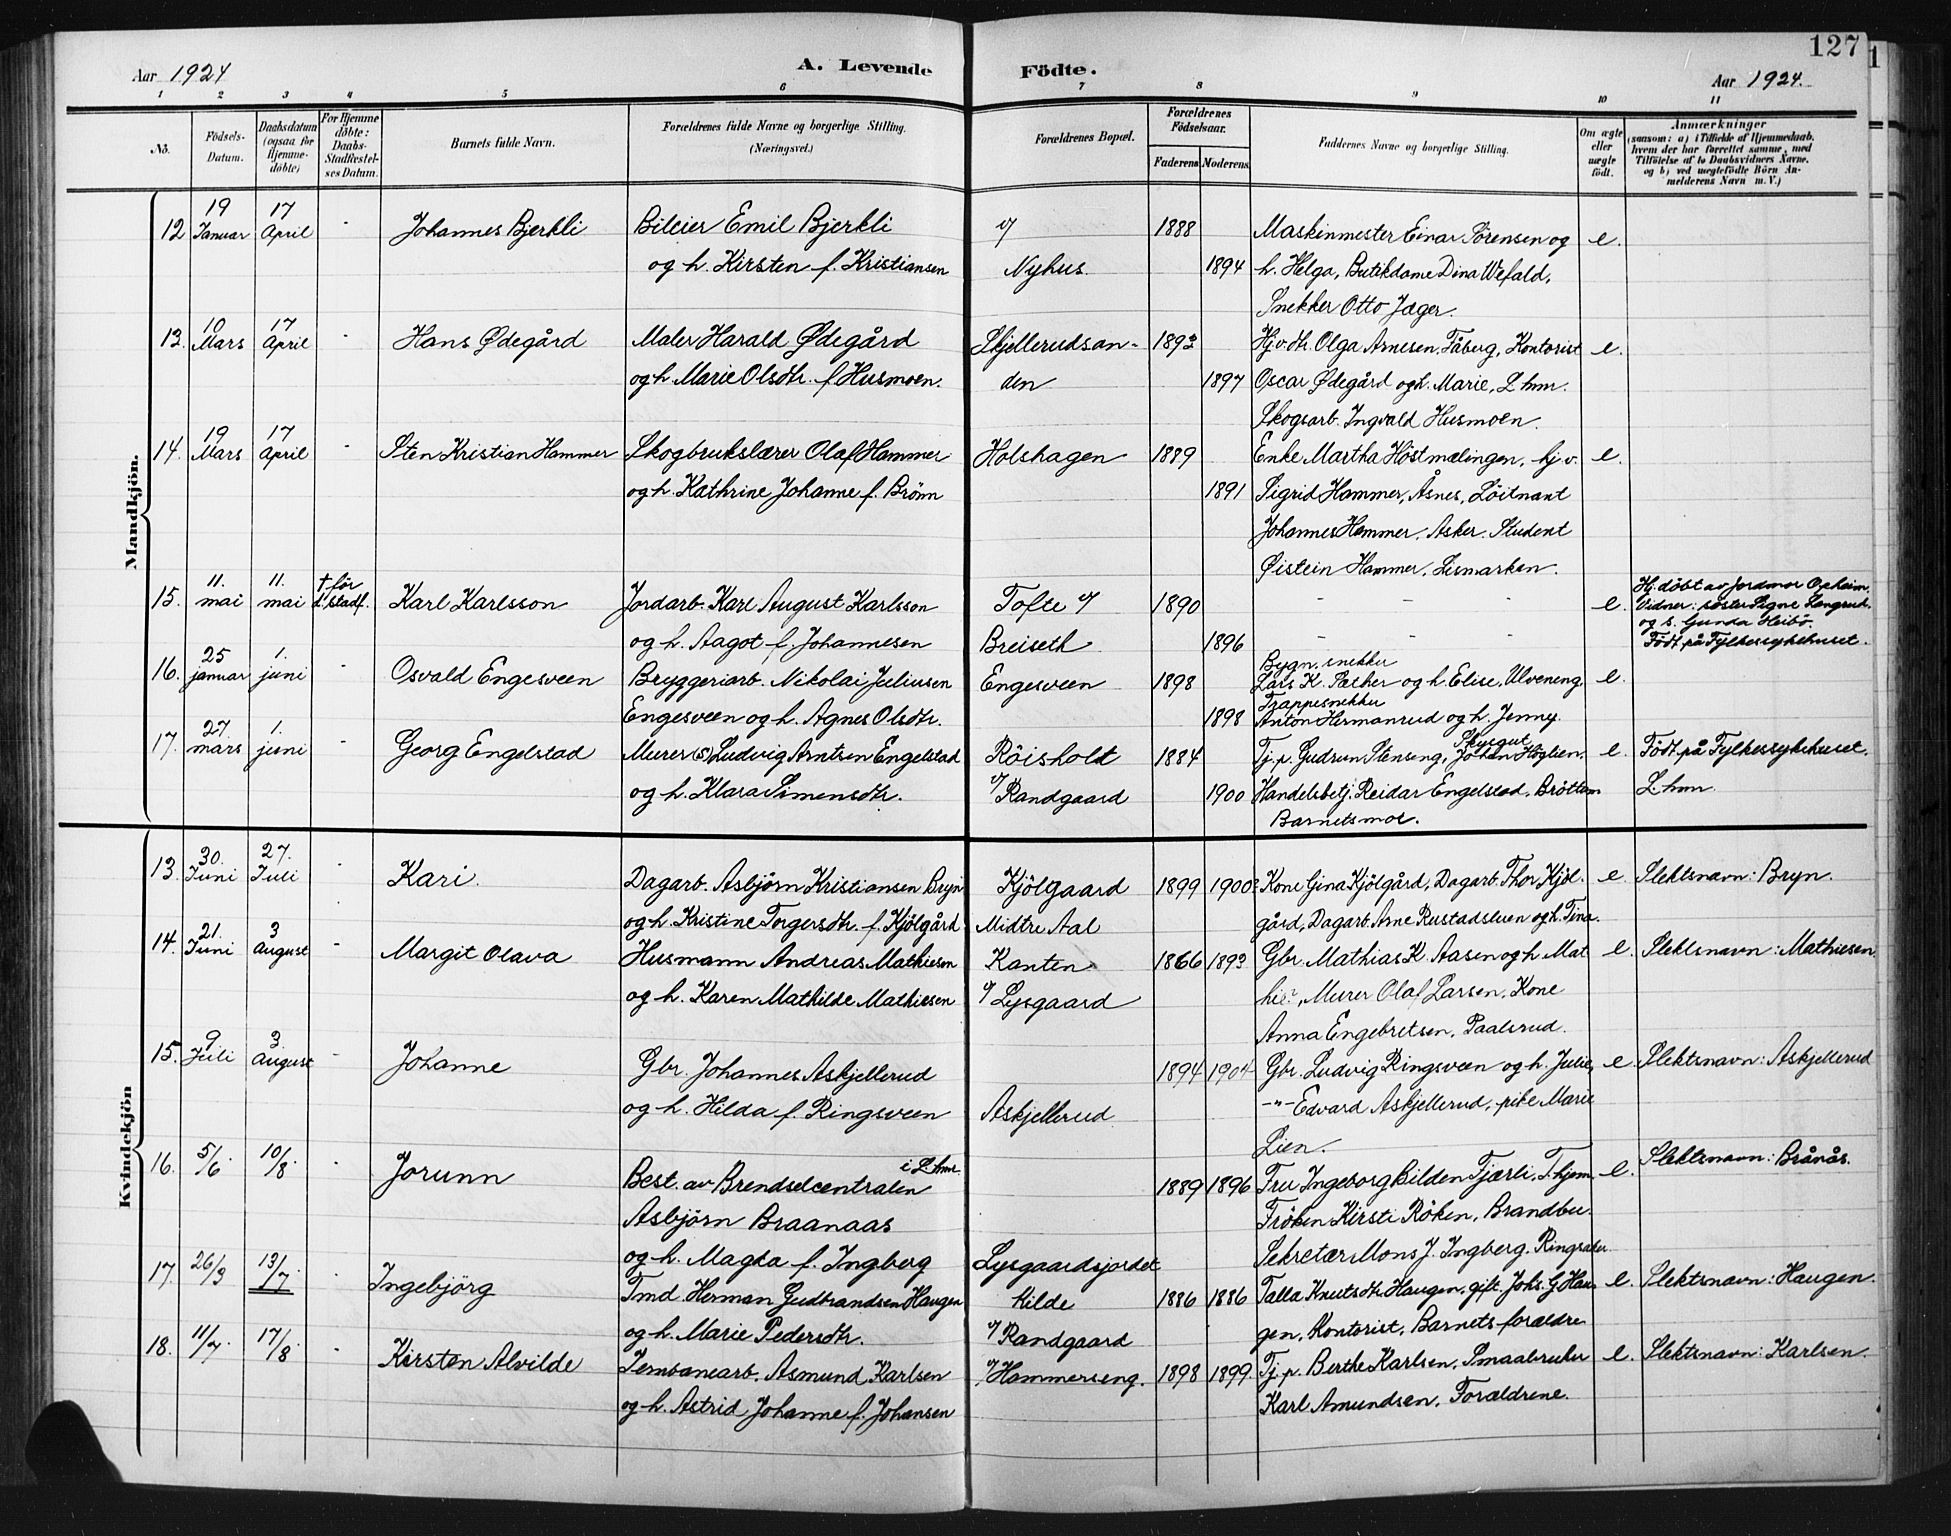 127
Aar 1924
A. Levende Födte.
Aar 1924.
1 2 3 4 5 6 7 8 9 10 11
No. Födsels-Datum. Daabsdatum (ogsaa for Hjemme-döbte) For Hjemme döbte: Daabs-Stadfæstel-ses Datum. Barnets fulde Navn. Forældrenes fulde Navne og borgerlige Stilling. (Næringsvei.) Forældrenes Bopæl. Forældrenes Födselsaar. Faderens Moderens Faddernes Navne og borgerlige Stilling. Om ægte eller uægte födt. Anmærkninger (saasom: a) i Tilfælde af Hjemmedaab, hvem der har forrettet samme, med Tilföielse af to Daabsvidners Navne. og b) ved uægtefödte Börn An-melderens Navn m. V.)
Mandkjön.
12 19 Januar 17 April - Johannes Bjerkli Bileier Emil Bjerkli v/ 1888 Maskinmester Einar Sörensen og e.
og h. Kirsten f. Kristiansen Nyhus. 1894 h. Helga, Butikdame Dina Wefald,
Snekker Otto Jæger.
13. 10 Mars 17 April - Hans Ødegård Maler Harald Ødegård Skjellerudsan- 1893 Hj.v. dtr. Olga Arnesen, Fåberg, Kontorist e.
og h. Marie Olsdtr. f. Husmoen. den 1897 Oscar Ødegård og h. Marie, L.hmr.
Skogsarb. Ingvald Husmoen.
14. 19 Mars 17 April - Sten Kristian Hammer Skogbrukslærer Olaf Hammer Holshagen 1889 Enke Martha Höstmælingen, hj.v. e.
og h. Kathrine Johanne f. Brönn 1891 Sigrid Hammer, Åsnes, Löitnant
Johannes Hammer, Asker. Student
Øistein Hammer, Lismarken.
15. 11. mai 11. mai † för d. stadf. Karl Karlsson Jordarb. Karl August Karlsson Tofte v/ 1890 - - - e. Hj.döbt av Jordmor Opheim. Vidner: söster Signe Langrud. og s. Gunda Heibö.
og h. Aagot f. Johannesen Breiseth 1896 - - - Födt på Fylkessykehuset.
16. 25 januar 1. juni - Osvald Engesveen Bryggeriarb. Nikolai Juliusen Engesveen 1898 Bygn. snekker Lars K. Sæther og h. Elise, Ulveneng e.
Engesveen og h. Agnes Olsdtr. 1898 Trappesnekker Anton Hermanrud og h. Jenny.
17. 27. mars 1. juni - Georg Engelstad Murer (S) Ludvig Arntsen Engelstad Röisholt 1884 Tj.p. Gudrun Stenseng, Skysgut Johan Höglien, e. Födt på Fylkessykehuset.
og h. Klara Simensdtr. v/ Randgaard 1900 Handelsbetj. Reidar Engelstad, Bröttum L.hmr.
Barnets mor.
Kvindekjön
13. 30. Juni 27. Juli - Kari. Dagarb. Asbjörn Kristiansen Bryn Kjölgaard 1899 1900 Kone Gina Kjölgård, Dagarb. Thor Kjöl- e Slektsnavn: Bryn.
og h. Kristine Torgersdtr. f. Kjölgård Midtre Aal gård, Dagarb. Arne Rustadstuen og h. Tina.
14. 21. Juni 3 August - Margit Olava Husmann Andreas Mathiesen Kanten 1866 1893 Gbr. Mathias K. Aasen og h. Mat e. Slektsnavn: Mathiesen
og h. Karen Mathilde Mathiesen v/ Lysgaard Murer Olaf Larsen, Kone
Anna Engebretsen, Paalsrud.
15. 9 Juli 3. August - Johanne Gbr. Johannes Askjellerud 1894 1904 Gbr. Ludvig Ringsveen og h. Julie, e. Slektsnavn: Askjellerud
og h. Hilda f. Ringsveen Askjellerud -"- Edvard Askjellerud, pike Marie
Lien.
16. 5/6. 10/8. - Jorunn Best. av Brendselcentralen i L.hmr. 1889 1896 Fru Ingeborg Bilden Tjærli, T.hjem. e. Slektsnavn: Brånås.
Asbjörn Braanaas Fröken Kirsti Röken, Brandbu.
og h. Magda f. Ingberg Lysgaardsjordet Sekretær Mons J. Ingberg, Ringsaker
17. 26/3 13/7 - Ingebjörg Tmd. Herman Gudbrandsen Haugen Kilde 1886 1886 Talla Knutsdtr. Haugen, gift, Johs. G Hau- e. Slektsnavn: Haugen.
og h. Marie Pedersdtr. v/ Randgaard gen, Kontorist, Barnets forældre
18. 11/7. 17/8. - Kirsten Alvilde Jernbanearb. Asmund Karlsen v/ Hammerseng. 1898 1899 Tj.p. Berthe Karlsen, Smaabruker e. Slektsnavn: Karlsen.
og h. Astrid Johanne f. Johansen Karl Amundsen, Forældrene.